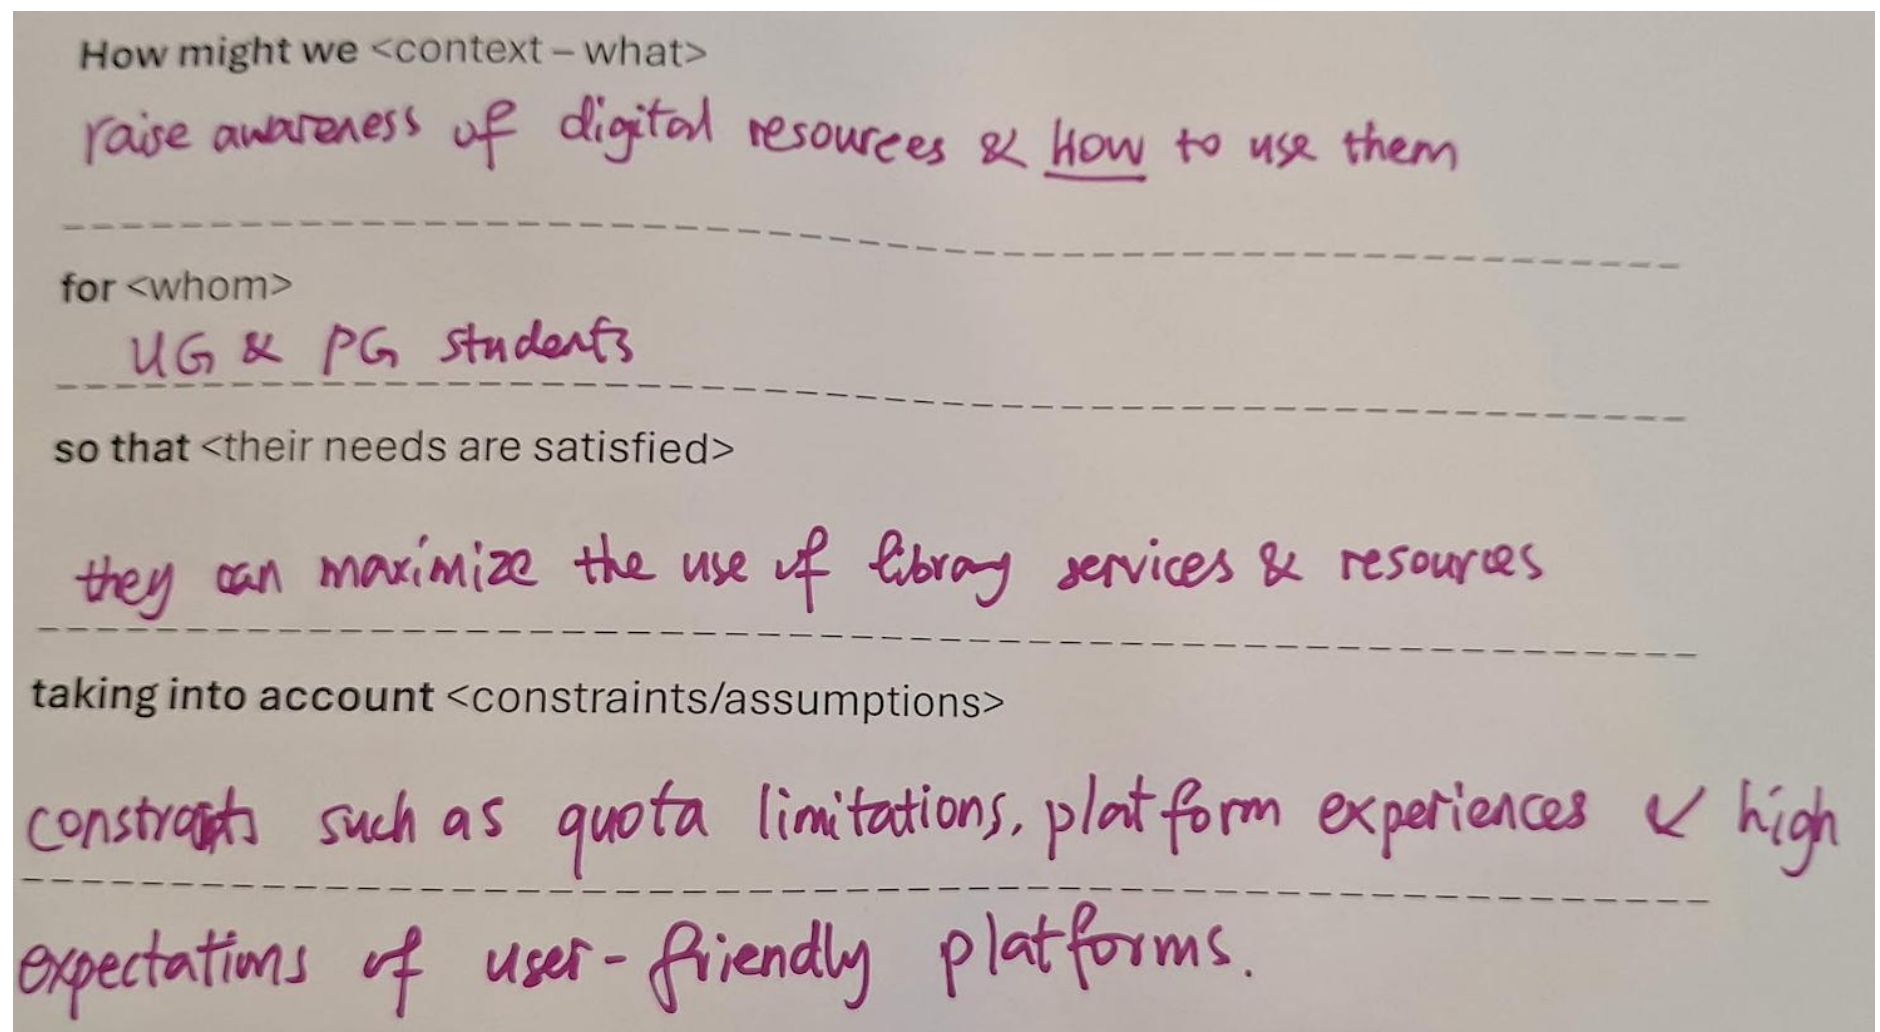 How might we <context – what>
raise awareness of digital resources & How to use them
for <whom>
UG & PG students
so that <their needs are satisfied>
they can maximize the use of library services & resources
taking into account <constraints/assumptions>
constraints such as quota limitations, platform experiences & high
expectations of user-friendly platforms.